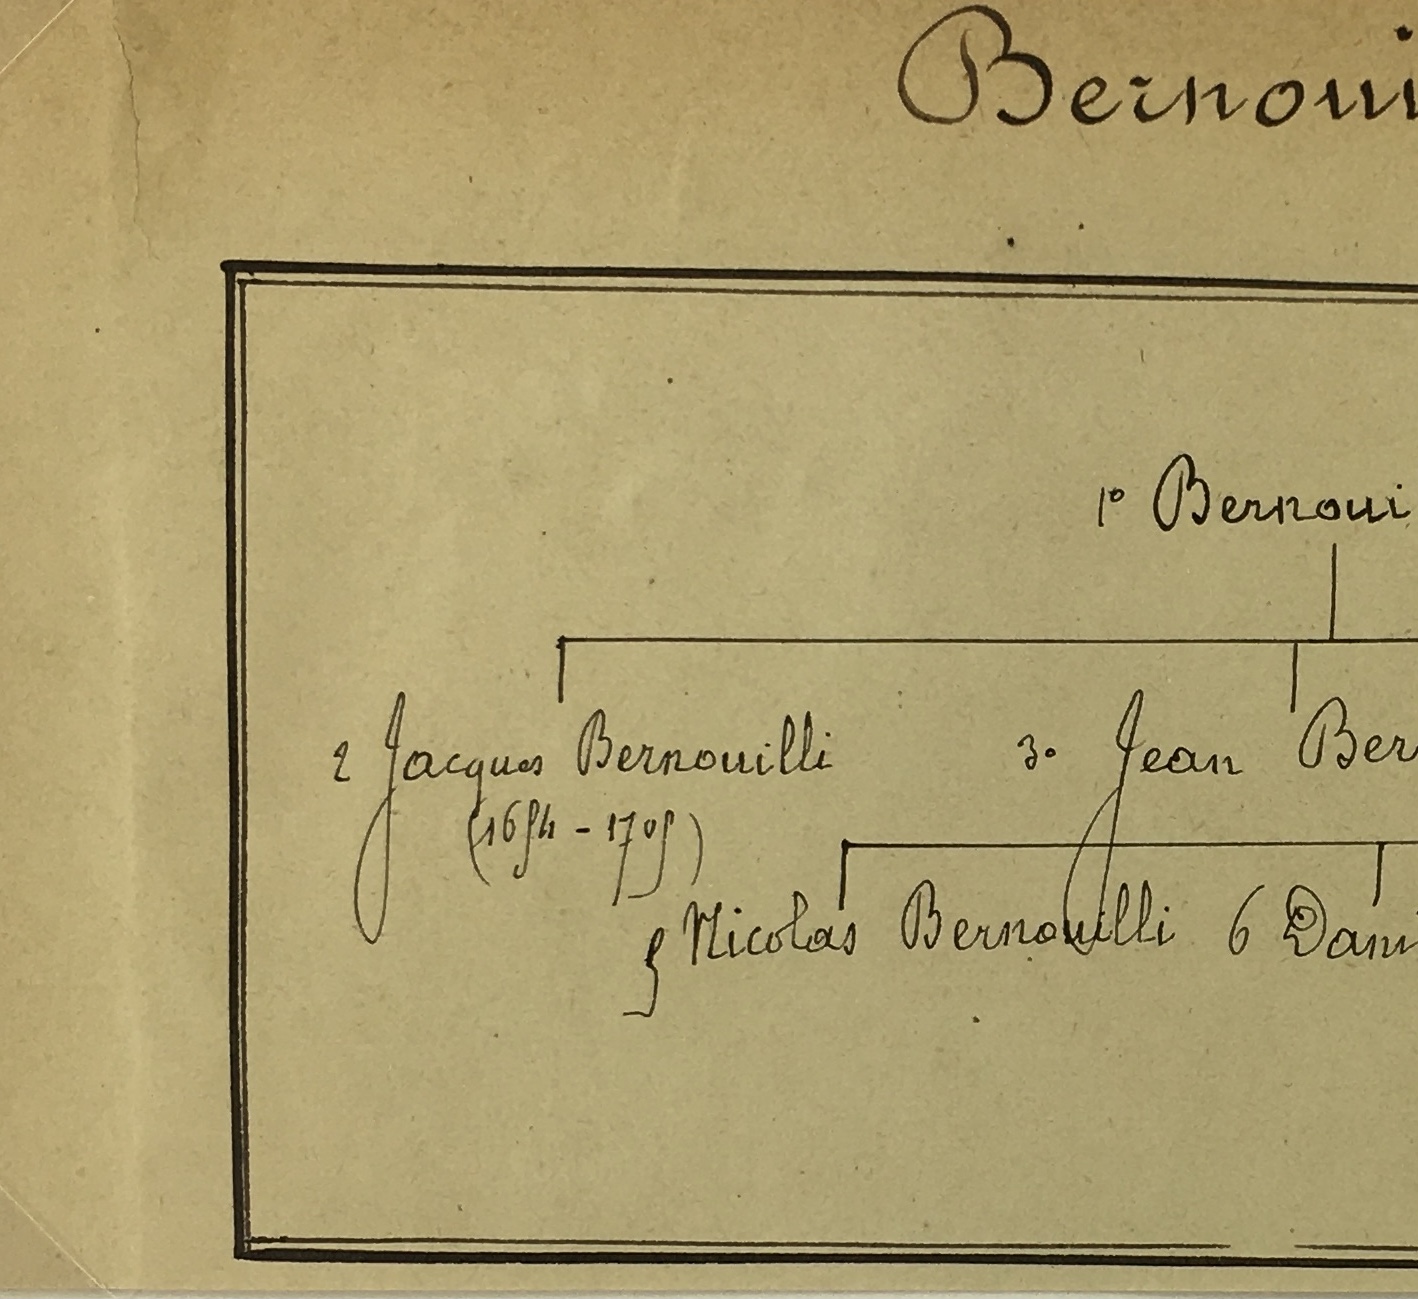 Bernoui
1° Bernoui
2 Jacques Bernouilli 3° Jean Ber
(1654 - 1705)
5 Nicolas Bernouilli 6 Dani